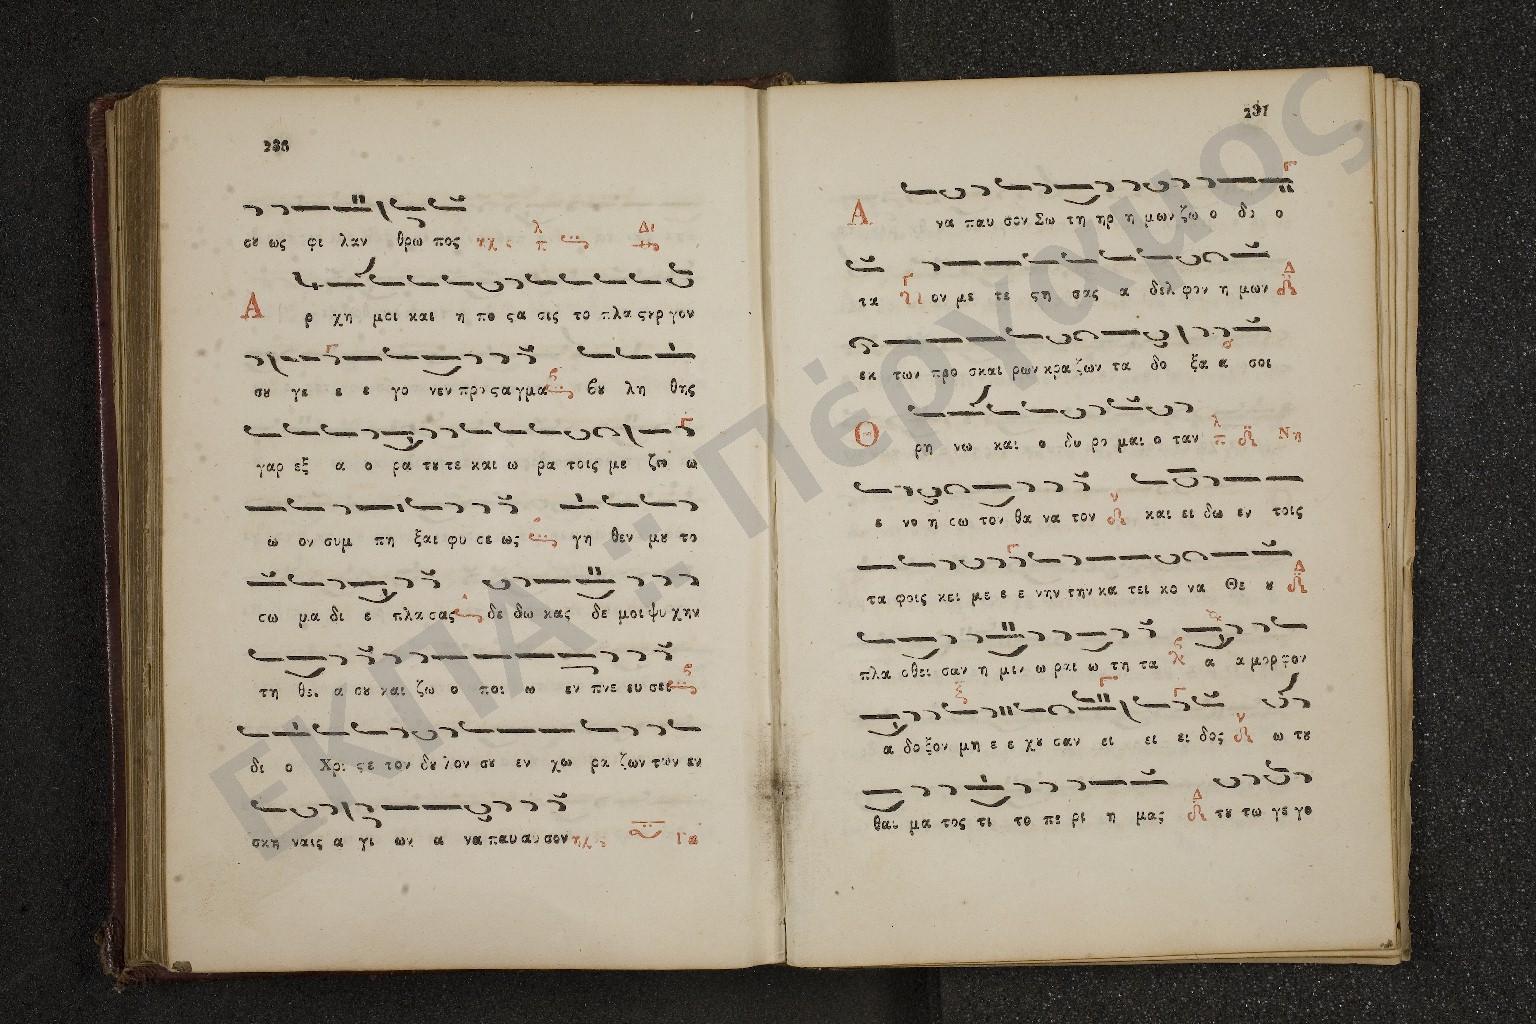 236
ȣ ως φι λαν θρω πος ηχς λ π Δι
Α ρ χη μοι και η πο ϛα σις το πλα ϛȣρ γον
σȣ γε ε ε γο νεν προ ϛα γμα Βȣ λη θης
γαρ εξ α ο ρα τȣ τε και ω ρα τοις με ζω ω
ω ον συμ πη ξαι φυ σε ως γη θεν μȣ το
σω μα δι ε πλα σας δε δω κας δε μοι ψυ χην
τη θει α σȣ και ζω ο ποι ω εν πνε ευ σει
δι ο Χρι ϛε τον δȣ λον σȣ εν χω ρα ζων των εν
σκη ναις α γι ων α να παυ αυ σον ηχς Γα
237
Α να παυ σον Σω τη ηρ η μων ζω ο δο ο
τα ον με τε ϛη σας α δελ φον η μων Δ
εκ των προ σκαι ρων κρα ζων τα δο ξα α σοι
Θ ρη νω και ο δυ ρο μαι ο ταν λ π Νη
ε νο η σω τον θα να τον και ει δω εν τοις
τα φοις κει με ε ε νην την κα τει κο να Θε ȣ Δ
πλα σθει σαν η μιν ω ραι ω τη τα α α μορ φον
α δο ξον μη ε ε χȣ σαν ει ει ει δος ω τȣ
θαυ μα τος τι το πε ρι η μας Δ τȣ το γε γο